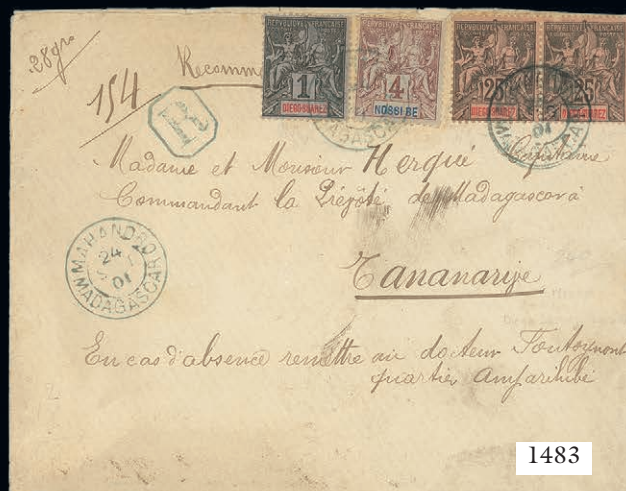 28 grs
Recomm
154
R
RÉPUBLIQUE FRANÇAISE
1
DIEGO-SUAREZ
RÉPUBLIQUE FRANÇAISE
4
NOSSI BE
RÉPUBLIQUE FRANÇAISE
25
DIEGO-SUAREZ
RÉPUBLIQUE FRANÇAISE
25
DIEGO-SUAREZ
Madame et Monsieur Herqué Capitaine
Commandant la de Madagascar à
Tananarive
MAHANORO
24
01
MADAGASCAR
En cas d'absence remettre au docteur Fontoynont
quartier
1483